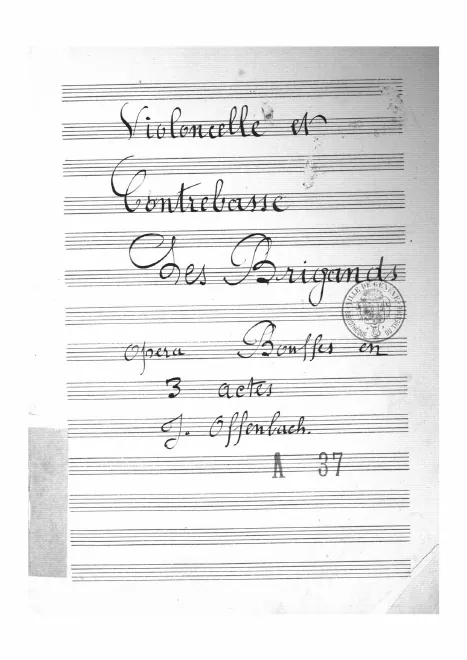 Violoncelle et
Contrebasse
Les Brigands
VILLE DE GENÈVE
opera Bouffes en
3 actes
J. Offenbach.
A 37